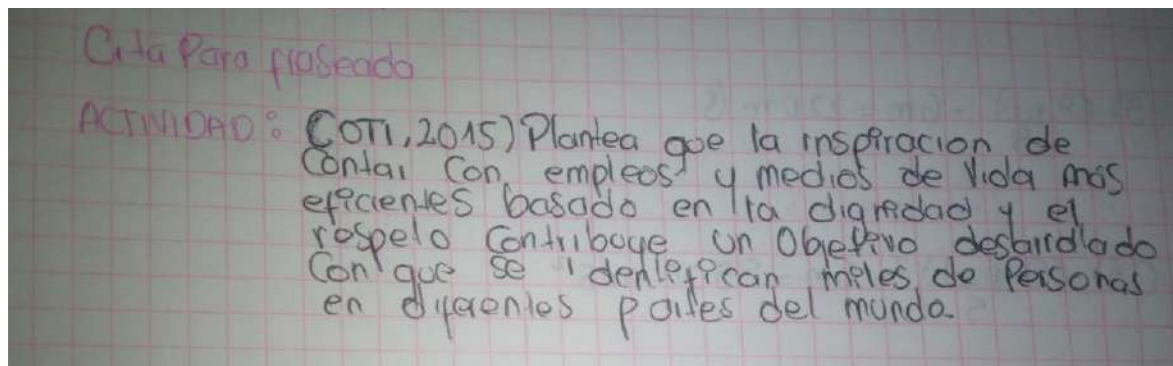 Cita Para fraseado
ACTIVIDAD: (OTI, 2015) Plantea que la inspiracion de
Contar Con empleos y medios de Vida mas
eficientes basado en la dignidad y el
respeto Contriboye un Objetivo desarrollado
Con que se identifican miles de Personas
en diferentes partes del mundo.